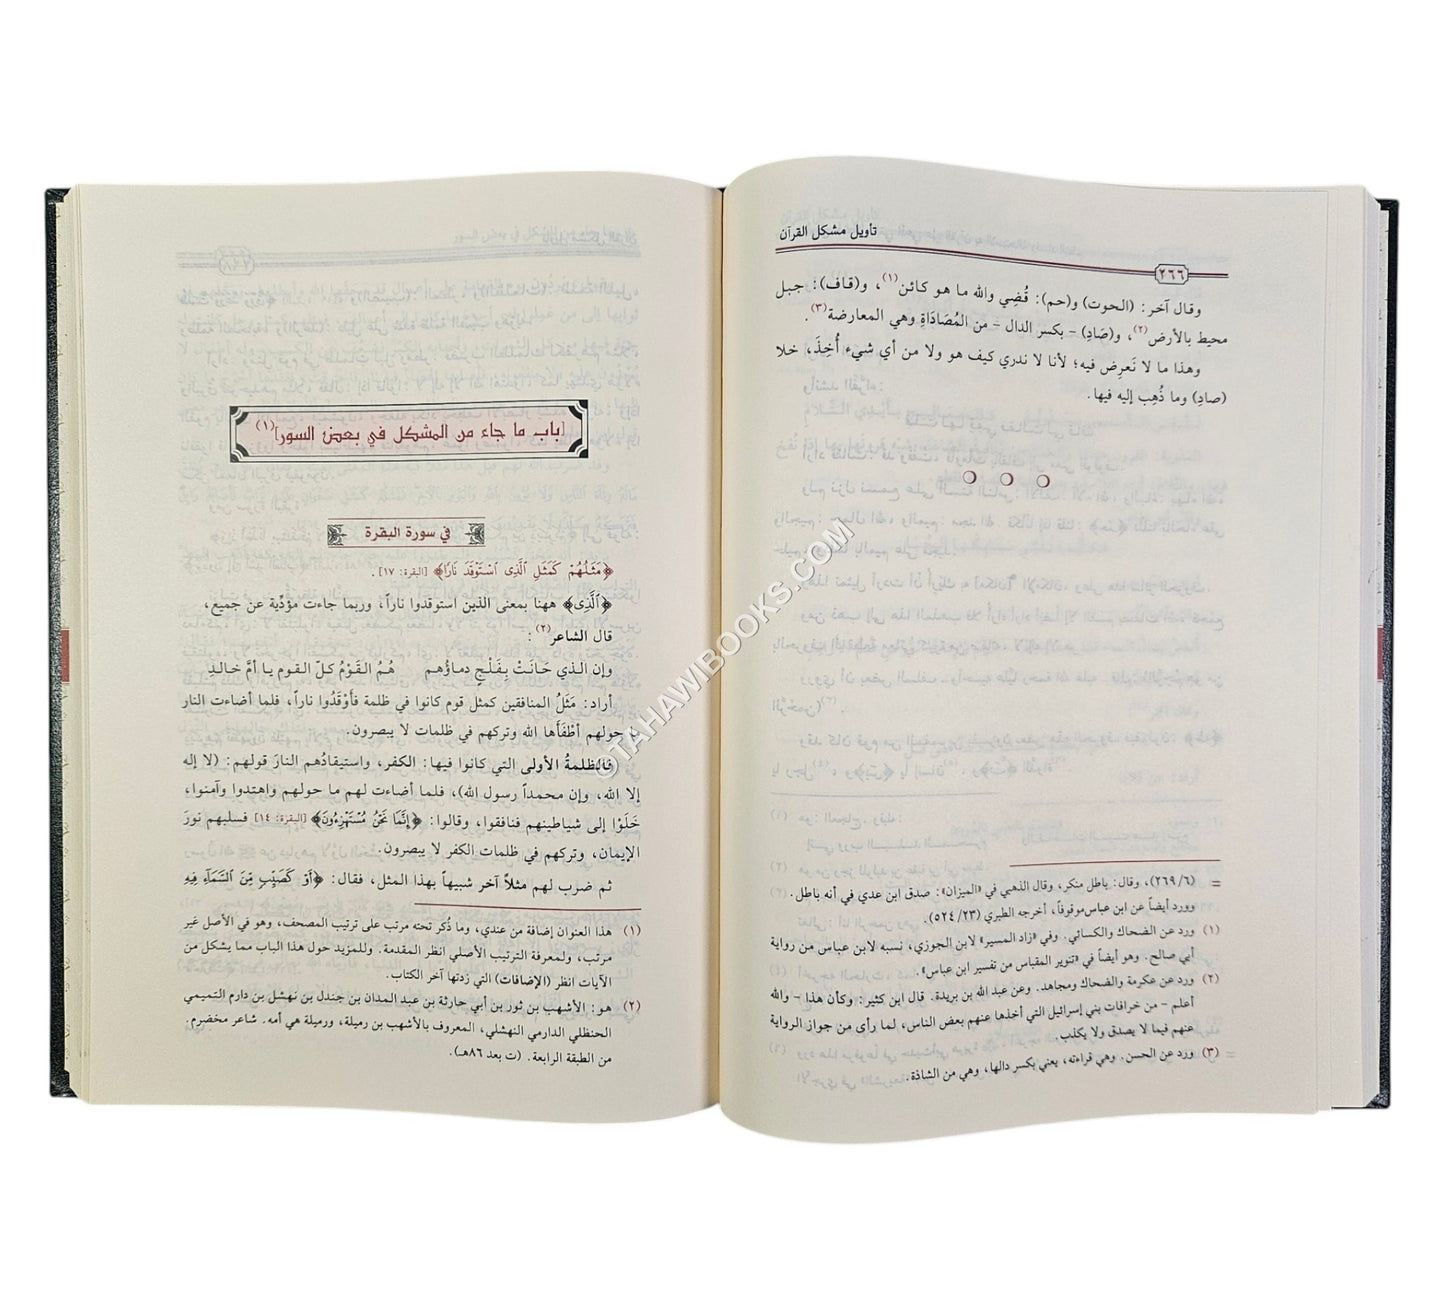 تأويل مشكل القرآن
٢٦٦
وقال آخر: (الحوت) و(حم): قُضِي والله ما هو كائن(١)، و(قاف): جبل
محيط بالأرض(٢)، و(صَادِ) - بكسر الدال - من المُصَادَاةِ وهي المعارضة(٣).
وهذا ما لا نَعرِض فيه؛ لأنا لا ندري كيف هو ولا من أي شيء أُخِذَ، خلا
(صادِ) وما ذُهِب إليه فيها.
= (٢٦٩/٦)، وقال: باطل منكر، وقال الذهبي في «الميزان»: صدق ابن عدي في أنه باطل.
وورد أيضاً عن ابن عباس موقوفاً، أخرجه الطبري (٥٢٤/٢٣).
(١) ورد عن الضحاك والكسائي. وفي «زاد المسير» لابن الجوزي، نسبه لابن عباس من رواية
أبي صالح. وهو أيضاً في «تنوير المقباس من تفسير ابن عباس».
(٢) ورد عن عكرمة والضحاك ومجاهد. وعن عبد الله بن بريدة. قال ابن كثير: وكأن هذا - والله
أعلم - من خرافات بني إسرائيل التي أخذها عنهم بعض الناس، لما رأى من جواز الرواية
عنهم فيما لا يصدق ولا يكذب.
(٣) ورد عن الحسن. وهي قراءته، يعني بكسر دالها، وهي من الشاذة.
[باب ما جاء من المشكل في بعض السور](١)
في سورة البقرة
﴿مَثَلُهُمْ كَمَثَلِ ٱلَّذِى ٱسْتَوْقَدَ نَارًا﴾ [البقرة: ١٧].
﴿ٱلَّذِى﴾ ههنا بمعنى الذين استوقدوا ناراً، وربما جاءت مؤدِّية عن جميع،
قال الشاعر(٢):
وإن الذي حَانَتْ بِفَلْجٍ دماؤهم هُمُ القَوْمُ كلّ القوم يا أمَّ خالدِ
أراد: مَثَلُ المنافقين كمثل قوم كانوا في ظلمة فأَوْقَدُوا ناراً، فلما أضاءت النار
ما حولهم أطْفَأَها الله وتركهم في ظلمات لا يبصرون.
فالظلمةُ الأولى التي كانوا فيها: الكفر، واستيقادُهم النارَ قولهم: (لا إله
إلا الله، وإن محمداً رسول الله)، فلما أضاءت لهم ما حولهم واهتدوا وآمنوا،
خَلَوْا إلى شياطينهم فنافقوا، وقالوا: ﴿إِنَّمَا نَحْنُ مُسْتَهْزِءُونَ﴾ [البقرة: ١٤] فسلبهم نورَ
الإيمان، وتركهم في ظلمات الكفر لا يبصرون.
ثم ضرب لهم مثلاً آخر شبيهاً بهذا المثل، فقال: ﴿أَوْ كَصَيِّبٍ مِّنَ ٱلسَّمَآءِ فِيهِ
(١) هذا العنوان إضافة من عندي، وما ذُكر تحته مرتب على ترتيب المصحف، وهو في الأصل غير
مرتب، ولمعرفة الترتيب الأصلي انظر المقدمة. وللمزيد حول هذا الباب مما يشكل من
الآيات انظر (الإضافات) التي زدتها آخر الكتاب.
(٢) هو: الأشهب بن ثور بن أبي حارثة بن عبد المدان بن جندل بن نهشل بن دارم التميمي
الحنظلي الدارمي النهشلي، المعروف بالأشهب بن رميلة، ورميلة هي أمه. شاعر مخضرم.
من الطبقة الرابعة. (ت بعد ٨٦هـ).
©TAHAWIBOOKS.COM